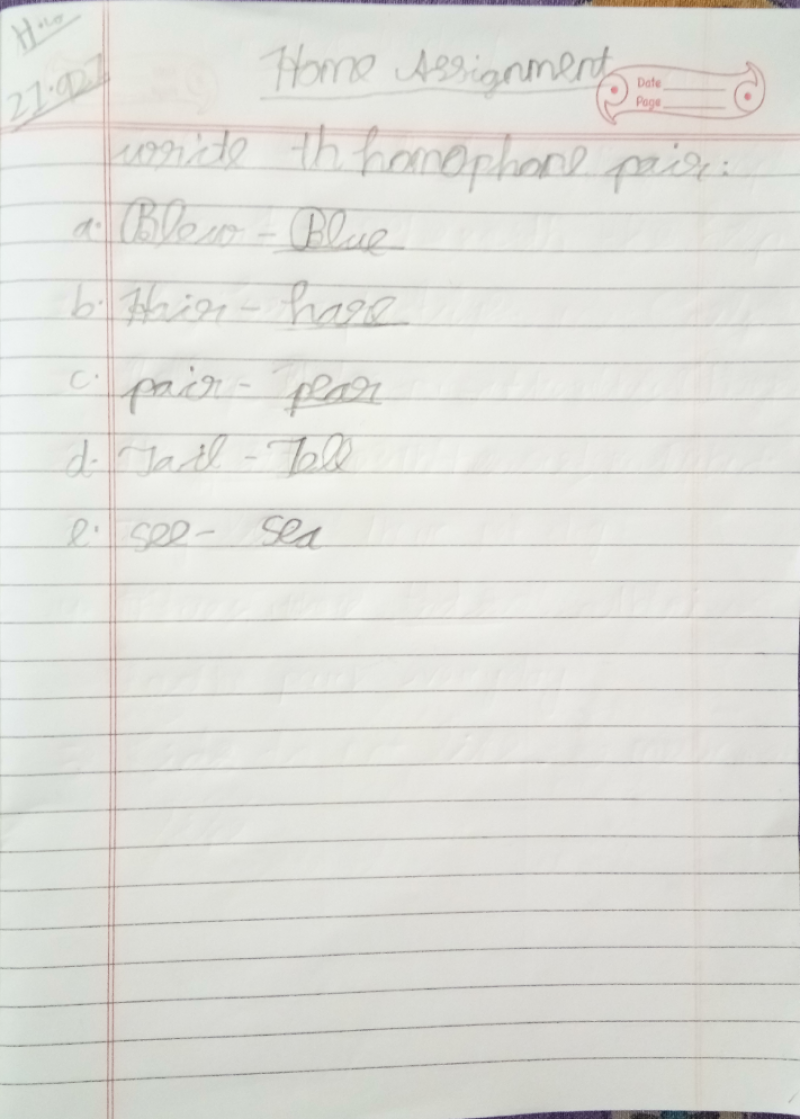 H.w
27.9.21
Home Assignment
Date
Page
write th homophone pair:
a. Blew - Blue
b. Hair - hare
c. pair - pear
d. Tail - Tale
e. see - sea